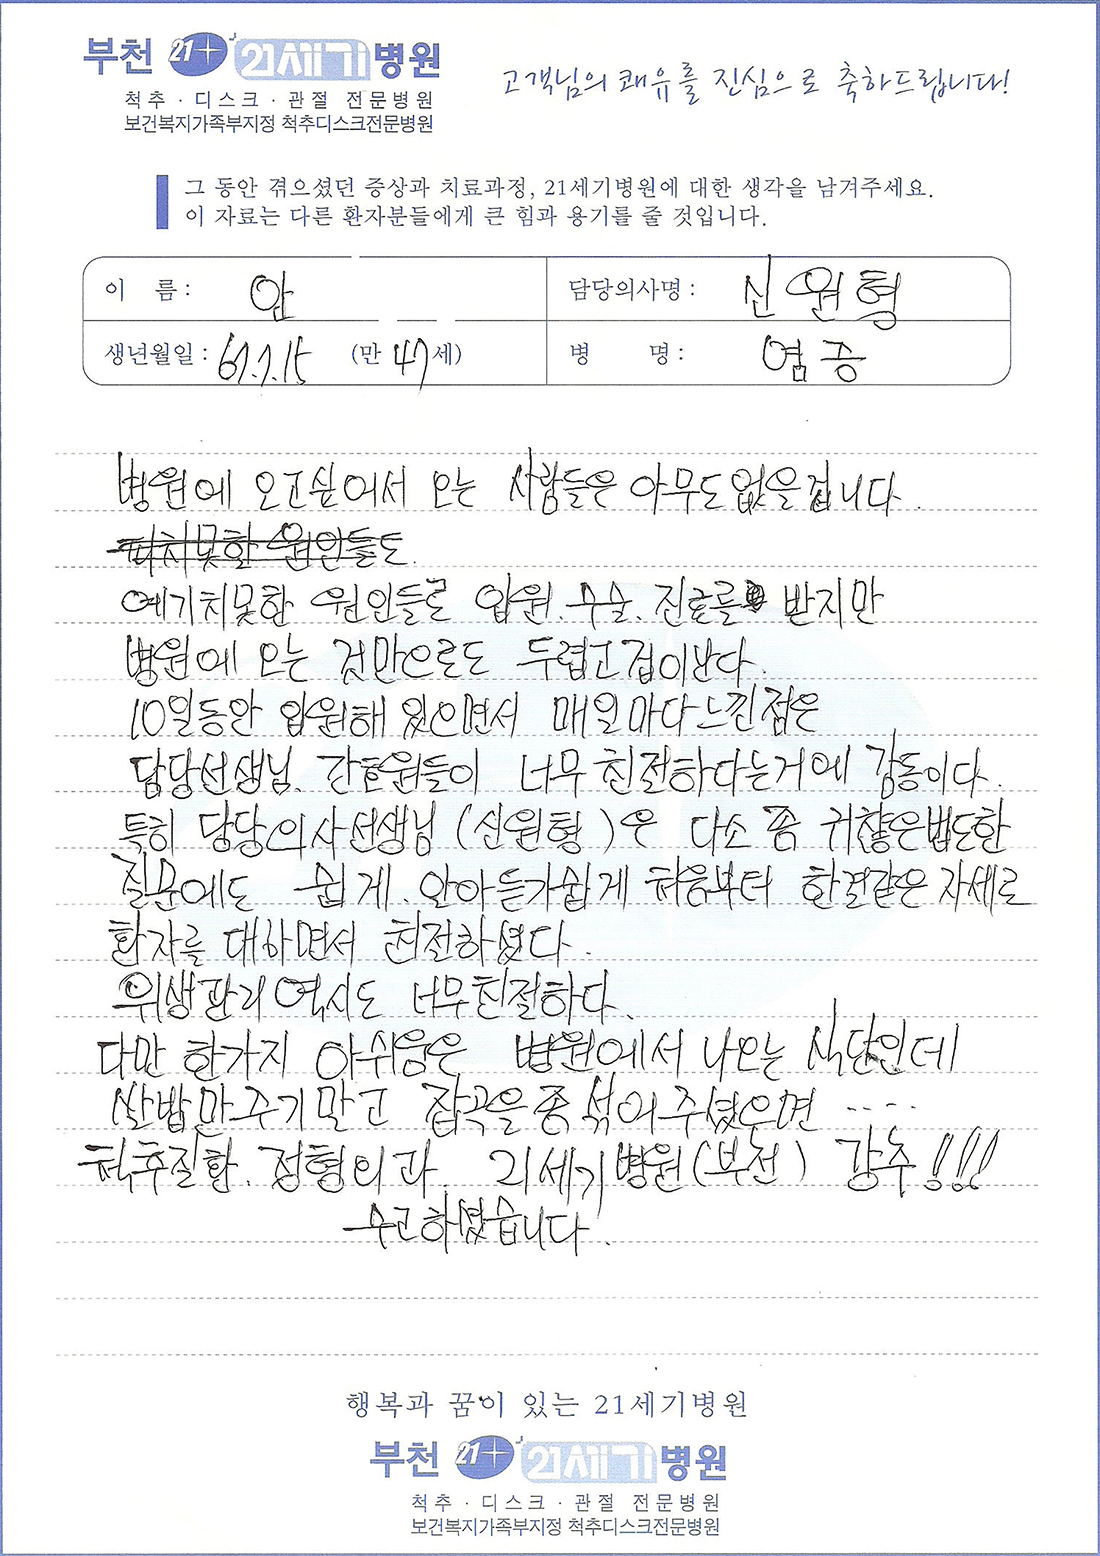 부천 21+ 21세기병원
척추 · 디스크 · 관절 전문병원
보건복지가족부지정 척추디스크전문병원
고객님의 쾌유를 진심으로 축하드립니다!
그 동안 겪으셨던 증상과 치료과정, 21세기병원에 대한 생각을 남겨주세요.
이 자료는 다른 환자분들에게 큰 힘과 용기를 줄 것입니다.
이 름 : 안 담당의사명 : 신원형
생년월일 : 67.7.15 (만 47 세) 병 명 : 염증
병원에 오고싶어서 오는 사람들은 아무도없을겁니다.
피치못할 원인들도.
예기치못한 원인들로 입원. 수술. 진료를 받지만
병원에 오는 것만으로도 두렵고 겁이난다.
10일동안 입원해 있으면서 매일마다느낀점은
담당선생님. 간호원들이 너무 친절하다는거에 감동이다.
특히 담당의사선생님 (신원형) 은 다소 쫌 귀찮은법도한
질문에도 쉽게. 알아듣기쉽게 처음부터 한결같은 자세로
환자를 대하면서 친절하셨다.
위생관리 역시도 너무친절하다.
다만 한가지 아쉬움은 병원에서 나오는 식단인데
쌀밥마주기말고 잡곡을좀섞어주셨으면 ....
척추질환. 정형외과. 21세기병원(부천) 강추!!!
수고하셨습니다.
행복과 꿈이 있는 21세기병원
부천 21+ 21세기병원
척추 · 디스크 · 관절 전문병원
보건복지가족부지정 척추디스크전문병원